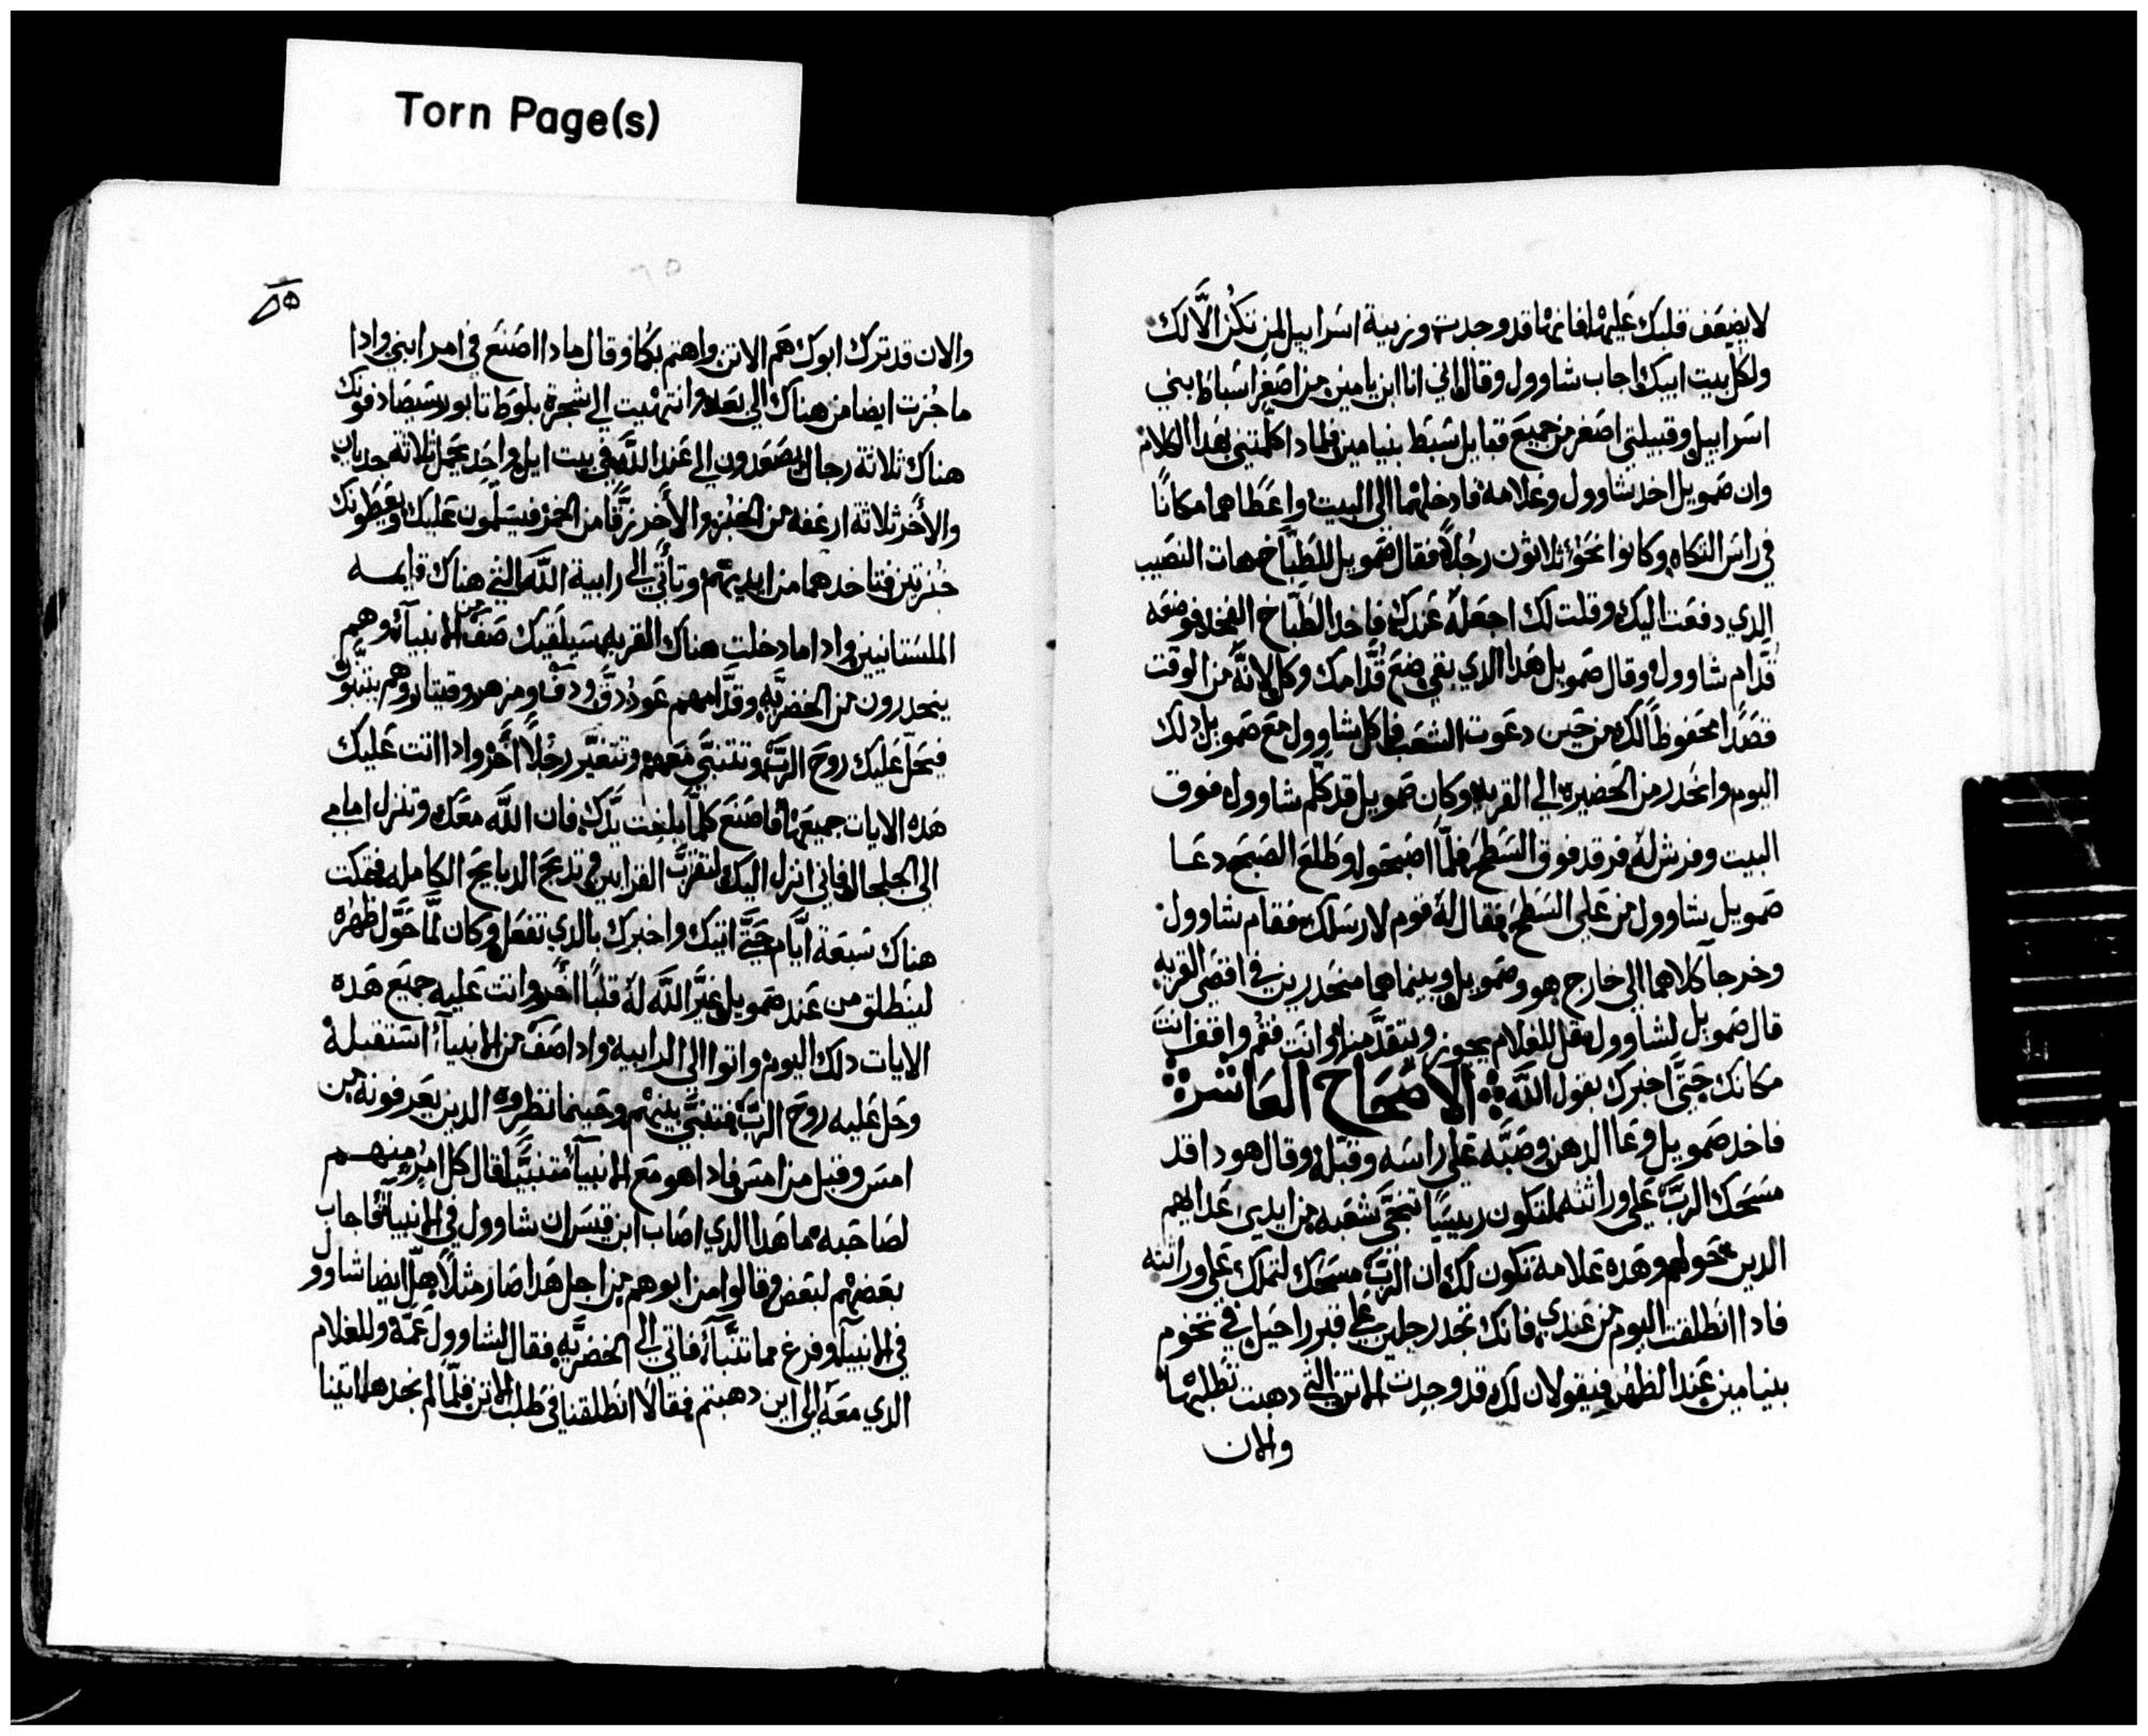 Torn Page(s)
لا يضعف قلبك عليها فانها قد وجدت وزينة اسرابيل لمن تكن الَّا لك
ولكل بيت ابيك اجاب شاوول وقال اني انا ابن يامين من اصغر اسباط بني
اسرابيل وقبيلتي اصغر من جميع قبايل شبط بنيامين فلماذا كلمتني بهدا الكلام
وان صمويل اخد شاوول وغلامه فادخلهما الى البيت واعطاهما مكانًا
في راس التكاه وكانوا نحو ثلاثون رجُلاً فقال صمويل للطباخ هات النصيب
الدي دفعت اليك وقلت لك اجعلهُ عندك فاخد الطباخ الفخد فوضعه
قدام شاوول وقال صمويل هدا الدي بقي ضع قُدامك وكل لانهُ من الوقت
قصدًا محفوظًا لك من حين دعوت الشعب فاكل شاوول مع صمويل دلك
اليوم وانحدر من الحضيره الى القريه وكان صمويل قد كلم شاوول فوق
البيت وفرش لهُ فرقد فوق السطح فلمّا اصبحوا وطلع الصبح دعا
صمويل شاوول من على السطح فقال لهُ قوم لارسلك فقام شاوول
وخرجا كلاهما الى خارج هو وصمويل وبينما هما منحدرين في اقصى القريه
قال صمويل لشاوول قل للغلام يجوز ويتقدّمنا وانت فقم واقفا انت
مكانك حتَّى اخبرك بقول اللَّه الاصحاح العاشر
فاخد صمويل وعا الدهن وصبَّه على راسه وقبلهُ وقال هودا قد
مسحك الربّ على وراثته لتكون رييسًا تنجّي شعبه من ايدي عدايهم
الدين حولهم وهده علامة تكون لك ان الربّ مسحك لتملك على وراثته
فادا انطلقت اليوم من عندي فانك تجد رجلين على قبر راحيل في تخوم
بنيامين عند الظهر فيقولان لك قد وجدت الاتن التي دهبت تطلبها
والان
٥٢
والان قد ترك ابوك هَم الاتن واهتم بكما وقال مادا اصنع في امر ابني وادا
ما جُزت ايضا من هناك الي بعد وانتهيت الي شجرة بلوط تابور سيصادفونك
هناك ثلاثة رجال يصعدون الى عند اللَّه في بيت ايل واحد يحمل ثلاثة جديان
والأخر ثلاثة ارغفه من الخبز والأخر زقًّا من الخمر فيسلّمون عليك ويعطونك
خبزتين فتاخدهما من ايديهم وتأتي الى رابية اللَّه التي هناك قايمه
الملستانيين وادا ما دخلت هناك القريه سيلقيك صف من الانبيآء وهم
ينحدرون من الخضريَّه وقدَّامهم عود ودقَّ ودف ومزهر وقيتار وهم يتنبون
فيحلّ عليك روح الربّ وتتنبَّي معهم وتتغيَّر رجُلاً أخر وادا اتت عليك
هده الايات جميعها فاصنع كلمّا بلغت يدّك فان اللَّه معك وتنزل امامي
الى الجلجال فاني انزل اليك لتقرب القرابين وتدبح الدبايح الكامله فتمكت
هناك سبعة ايَّام حتَّى اتيك واخبرك بالدي تفعل وكان لمَّا حوَّل ظهره
لينطلق من عند صمويل غيَّر اللَّه لهُ قلبًا أخر واتت عليه جميع هده
الايات دلك اليوم واتوا الى الرابيه وادا صف من الانبيآء استقبلهُ
وحل عليه روح الربّ فتنبَّي بينهم وحينما نظروه الدين يعرفونه من
امس وقبل من امس فادا هو مع الانبيآء متنبيًّا قال كل امرء منهم
لصاحبه ما هدا الدي اصاب ابن قيس ان شاوول في الانبيآء فاجاب
بعضهم لبعض وقالوا من ابوهم من اجل هدا صار مثلاً هل ايضا شاوول
في الانبيآء وفرغ مما تنبَّاء فاتي الى الخضريَّه فقال لشاوول عمَّه وللغلام
الدي معه الى اين دهبتم فقالا انطلقنا في طلب الاتن فلمَّا لم نجدها اتينا